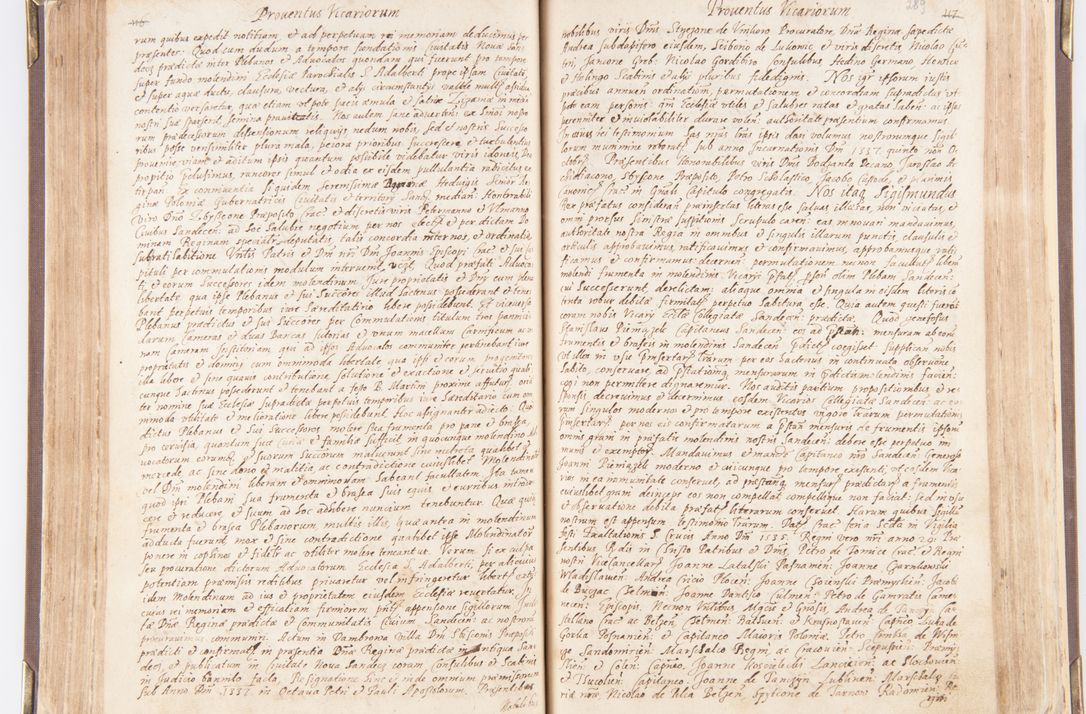 116 Proventus Vicariorum
rum quibus expedit notitiam, et ad perpetuam rei memoriam deducimus per
præsentes: Quod cum dudum a tempore fundationis Civitatis Nova San
decz prædictæ inter Plebanos et Advocatos quondam qui fuerunt pro tempore
super fundo molendini Ecclesiæ Parochialis S. Adalberti prope ipsam Civitatem
et super aquæ ductu, clausura, vectura, et alys circumstantys valde multis
contentio versaretur, quæ etiam utpote pacis æmula et satrix Zizania in
nostri sua sparserat semina pravitatis. Nos autem sane advertentes ex
rum prædecessorum dissensionum reliquys, nedum nobis, sed et nostris Successo
ribus posse verisimiliter plura mala, peiora prioribus succrescere
provenire
propitio possumus, rancores simul et odia ex eisdem pullulantia radicitus
tirpari. Ex conniventia siquidem Serenissimæ Dominæ Hedwigis
ginæ Poloniæ Gubernatricis Civitatis et territory Sandecz: median: Honorabili
Viro Dno Zbyssone Præposito Crac: et discretis viris Petermanno et Ulmanno
Civibus Sandecen: ad hoc Salubre negotium per nos electis et per dictam Do
minam Reginam specialiter deputatis, talis concordia inter nos, et ordinatio,
subratihabitione Vntis Patris et Dni nri Dni Joannis Episcopi Crac: et sui
pituli per commutationis modulum intervenit, vczt. Quod præfati Advoca
ti, et eorum Successores idem molendinum Jure proprietatis et Dny cum
libertate, qua ipse Plebanus et sui Successores illud hactenus possederunt et tene
bant perpetuis temporibus iure Hæreditario libere possidebunt. Et
Plebanus prædictus et sui Succores per Commutationis titulum tres panni
darum Cameras et duas Bancas sutorias et unum macellum Carnificum
nam Cameram Institoriam, quæ ad ipsos Advocatos communiter pertinebant
proprietatis et dominy cum omnimoda libertate qua ipsi et eorum progenitores
illa libere et sine quavis contributione solutione et exactione et servitio
cunque hactenus possederunt et tenebant a festo B. Martini proxime affuturi
ter nomine suæ Ecclesiæ supradictæ perpetuis temporibus iure Hæreditario cum
nimoda utilitate et melioratione libere possidebunt. Hoc assignanter adiecto. Quod
dictus Plebanus et sui Successores molere sua frumenta pro pane et brasea,
pro cervisia, quantum suæ Curiæ et familiæ sufficit in quocunque molendino
vocatorum eorum et suorum Successorum maluerint sine metreta qualibet
mercede, ac sine dono et malitia, ac contradictione cuiuslibet Molendina
vel Dni molendini liberam et omnimodam habeant facultatem. Ita tamen
quod ipsi Plebani sua frumenta et brasea suis equis et curribus
cere et reducere et suum ad hoc adhibere nuncium tenebuntur. Quæ
frumenta et brasea Plebanorum, multis illis, quæ antea in molendinum
adducta fuerunt mox et sine contradictione quælibet ipse Molendinator
ponere in cophinos et fideliter ac utiliter molere teneantur. Verum si ex culpa
seu procuratione dictorum Advocatorum Ecclesia S. Adalberti, per alicuius
potentiam præmissis redditibus privaretur vel infringeretur libertas
idem Molendinum ad ius et proprietatem eiusdem Ecclesiæ revertatur. In
cuius rei memoriam et efficatiam firmiorem pntis appensione Sigillorum
tæ Dnæ Reginæ prædictæ et Communitatis Civium Sandecen: ac nostrorum
procuravimus communiri. Actum in Dambrowa Villa Dni Sbissonis Præposit
prædicti et confirmatum in præsentia Dnæ Reginæ prædictæ in Antiqua San
decz, et publicatum in Civitate Nova Sandecz coram Consulibus et Scabinis
in Judicio bannito facto, Resignatione sincera inde omnium præmissorum
Sub Anno Dni 1337 in Octava Petri et Pauli Apostolorum. Præsentibus
Nobilibus
Proventus Vicariorum 289 117
nobilibus viris Dnis Strezone de Vnihoro Procuratore, Dnæ Reginæ sæpedictæ
Andrea Subdapifero eiusdem, Scibonio de Luhomie, et viris discretis Nicolao
teri, Jancone Greb: Nicolao Gorditero Consulibus Hedino Germano Henrico
et Holingo Scabinis et alys pluribus fidedignis. Nos igr ipsorum iustis
præcibus annuen: ordinationem, permutationem et concordiam supradictas ut
pote eam personis: quam Ecclesiæ utiles et salubres ratas et gratas haben: ac ipsas
perenniter et inviolabiliter durare volen: authoritate præsentium confirmamus.
In cuius rei testimonium has nras lras ipsis dari volumus nostrorumque sigil
lorum munimine roborat: sub anno Incarnationis Dni 1337. quinto non O
ctobris. Præsentibus Honorabilibus viris Dnis Bodzanta Decano, Jaroslao Ar
chidiacono, Sbyssone Præposito, Petro Scholastico, Jacobo Custode, et plurimis
Canonicis Crac: in Gnali Capitulo congregatis. Nos itaq Sigismundus
Rex præfatus consideran: præinsertas literas esse salvas illæsas, non viciatas, et
omni prorsus sinistræ suspitionis scrupulo caren: eas innovari mandavimus,
authoritate nostra Regia in omnibus et singulis illarum punctis, clausulis et
articulis approbavimus ratificavimus et confirmavimus, approbamusque rati
ficamus et confirmamus: decernen: permutationem necnon facultatem liberæ
molendi frumenta in molendinis Vicarys pfat: ipsor olim Plebani Sandecen:
cui Successerunt, derelictam: aliaque omnia et singula in eisdem libris con
tenta robur debitæ firmitatis perpetuo habitura esse. Quia autem questi fuerant
coram nobis Vicary Ecclæ Collegiatæ Sandecen: prædictæ. Quod generosus
Stanislaus Pieniążek Capitaneus Sandecen: eos ad pstan: mensuram ab eorum
frumentis et braseis in molendinis Sandecen: pdict: coegisset: Supplican: nobis
ut illos in usu pinsertar Trarum per eos hactenus in continuata observatione
habito, conservare, ad pstationem mensurarum in pdictis molendinis facien:
cogi non permittere dignaremur. Nos auditis partium propositionibus et re
sponsis decrevimus et decernimus eosdem Vicarios Collegiatæ Sandecen: ac eo
rum singulos modernos et pro tempore existentes vigore Trarum permutationis
pinsertar: per nos eis confirmatarum a pstan: mensuris de frumentis ipsorum
omnis grani in præfatis molendinis nostris Sandecen: debere esse perpetuo im
munes et exemptos. Mandavimus et mandamus Capitaneo nro Sandecen: Generoso
Joanni Pieniążek moderno et cuicunque pro tempore existenti, ut eosdem Vica
rios in ea immunitate conservet, ad præstanq; mensur: prædictar: a frumentis
cuiuslibet grani deinceps eos non compellat compellique non faciat: sed in usu
et observatione debita præfatar literarum conservet. Harum quibus Sigillum
nostrum est appensum testimonio Trarum. Dat: Crac: feria Scda in Vigilia
festi Exaltationis S. Crucis Anno Dni 1535. Regni vero nri anno 29. Præ
sentibus Rndis in Christo Patribus et Dnis, Petro de Tomice Crac: et Regni
nostri Vicecancellary Joanne Latalski Posnanien: Joanne Carnkowski
Wladislavien: Andrea Cricio Plocen: Joanne Choienski Præmyslien: Jacobo
de Buczac Chelmen: Joanne Dantisco Culmen: Petro de Gamratis Came
necen: Episcopis. Necnon Vntibus Mgcis et Gnosis, Andrea de Tęnczyn Ca
stellano Crac: ac Belzen: Chelmen: Ratssen: et Krasnostaven: Capneo, Luca de
Gorka Posnanien: et Capitaneo Maioris Poloniæ, Petro Kmitha de Wisni
cze Sandomirien: Marschalco Regni, ac Cracovien: Scepusien: Præmy
slien: et Colen: Capneo, Joanne Koscielecki Lancicien: ac Slochovien
et Tucolien: Capitaneo: Joanne de Tanczyn Lublinen: Marschalco Cu
riæ nræ, Nicolao de Pilcza Belzen: Spytcone de Tarnow Radomien: Re
gni